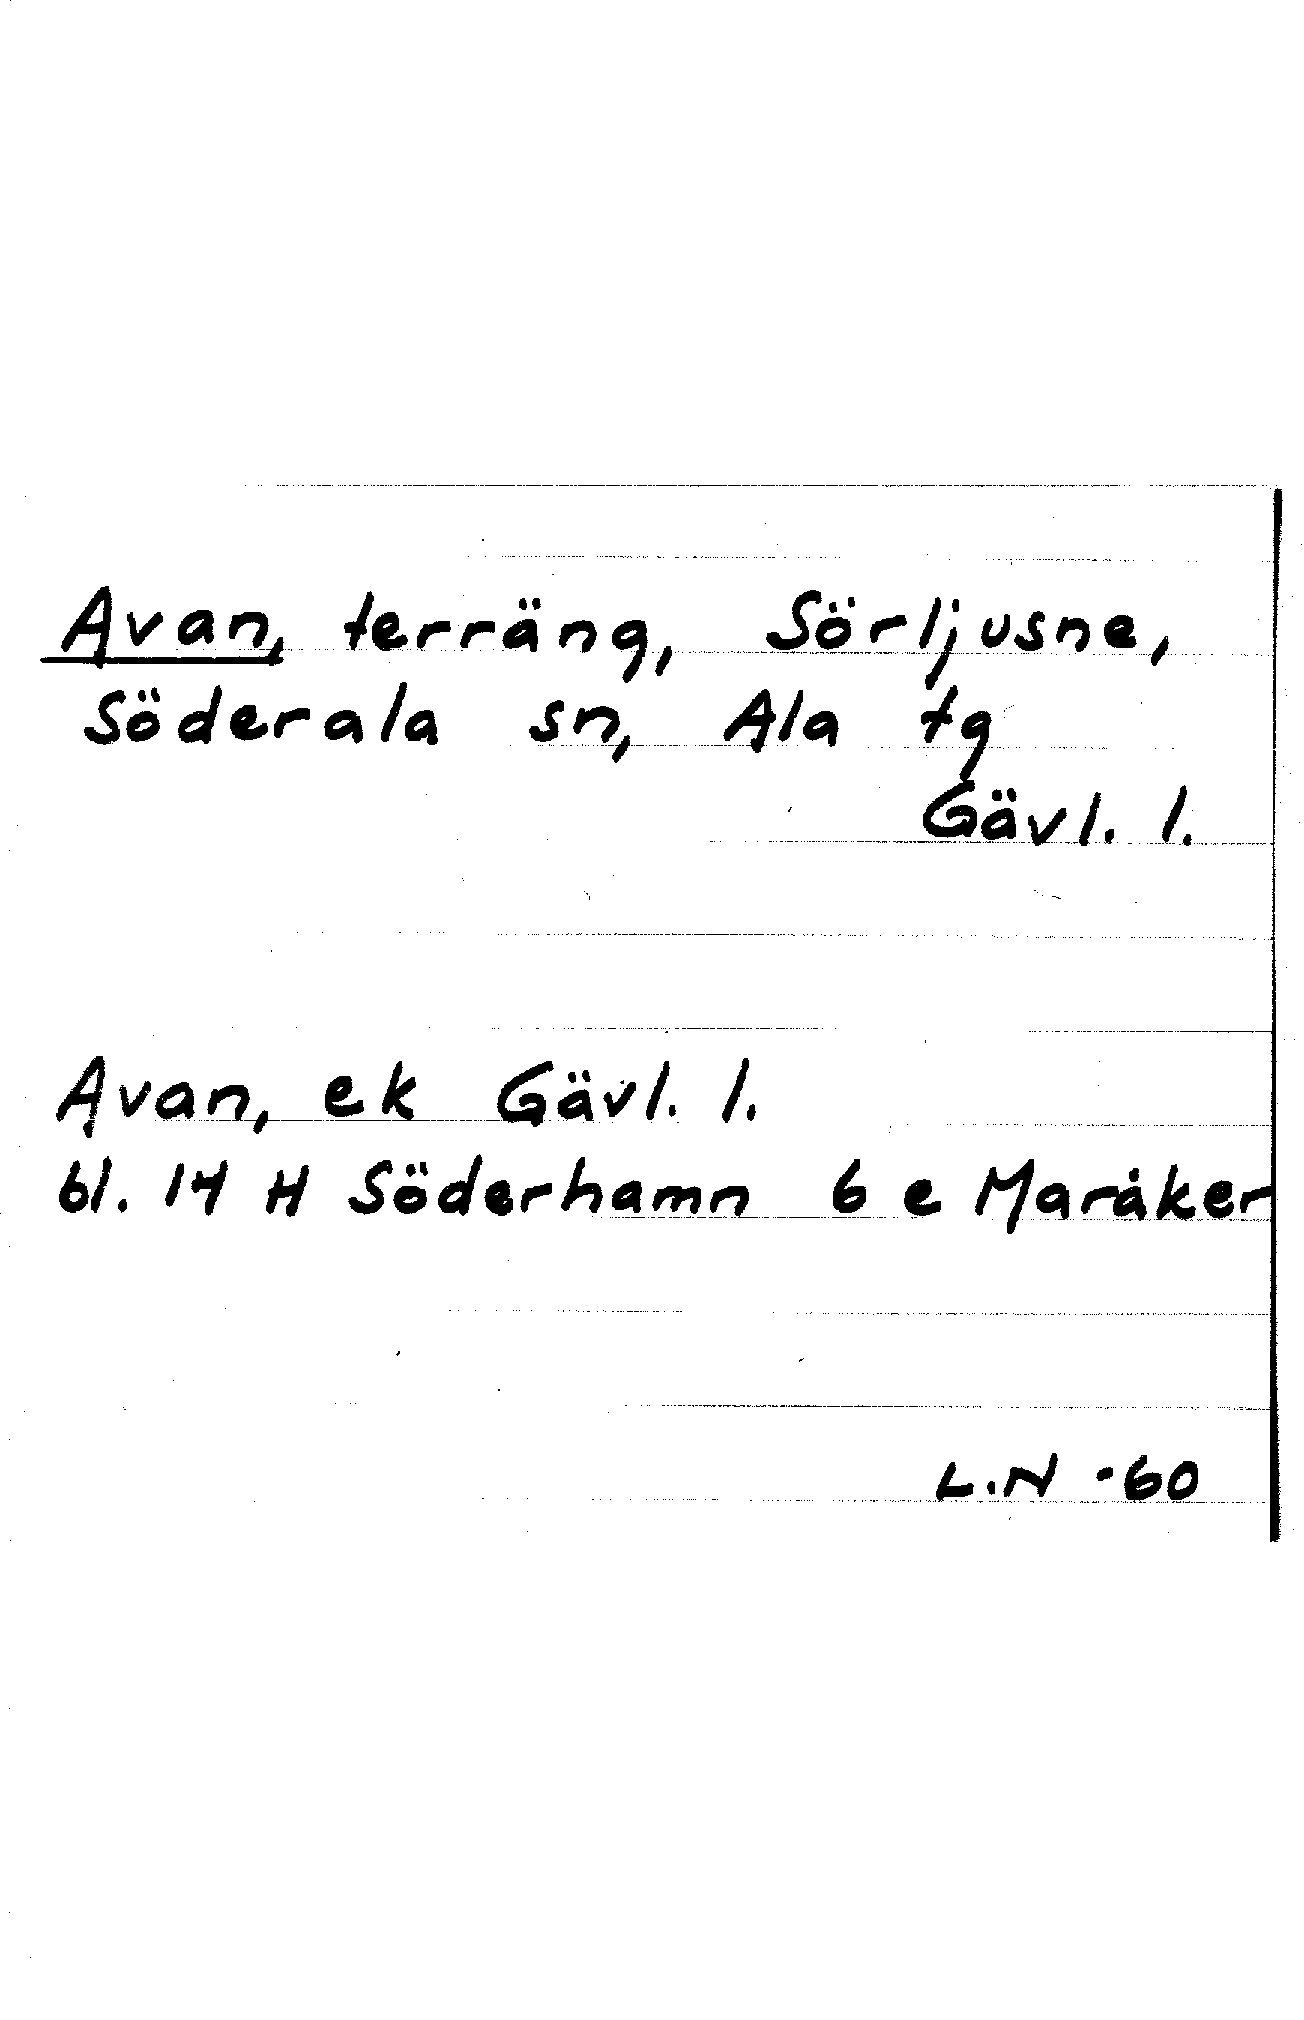 Avan, terräng, Sörljusne,
Söderala sn, Ala tg
Gävl. l.
Avan, ek Gävl. l.
bl. 14 H Söderhamn 6 e Maråker
L.N -60